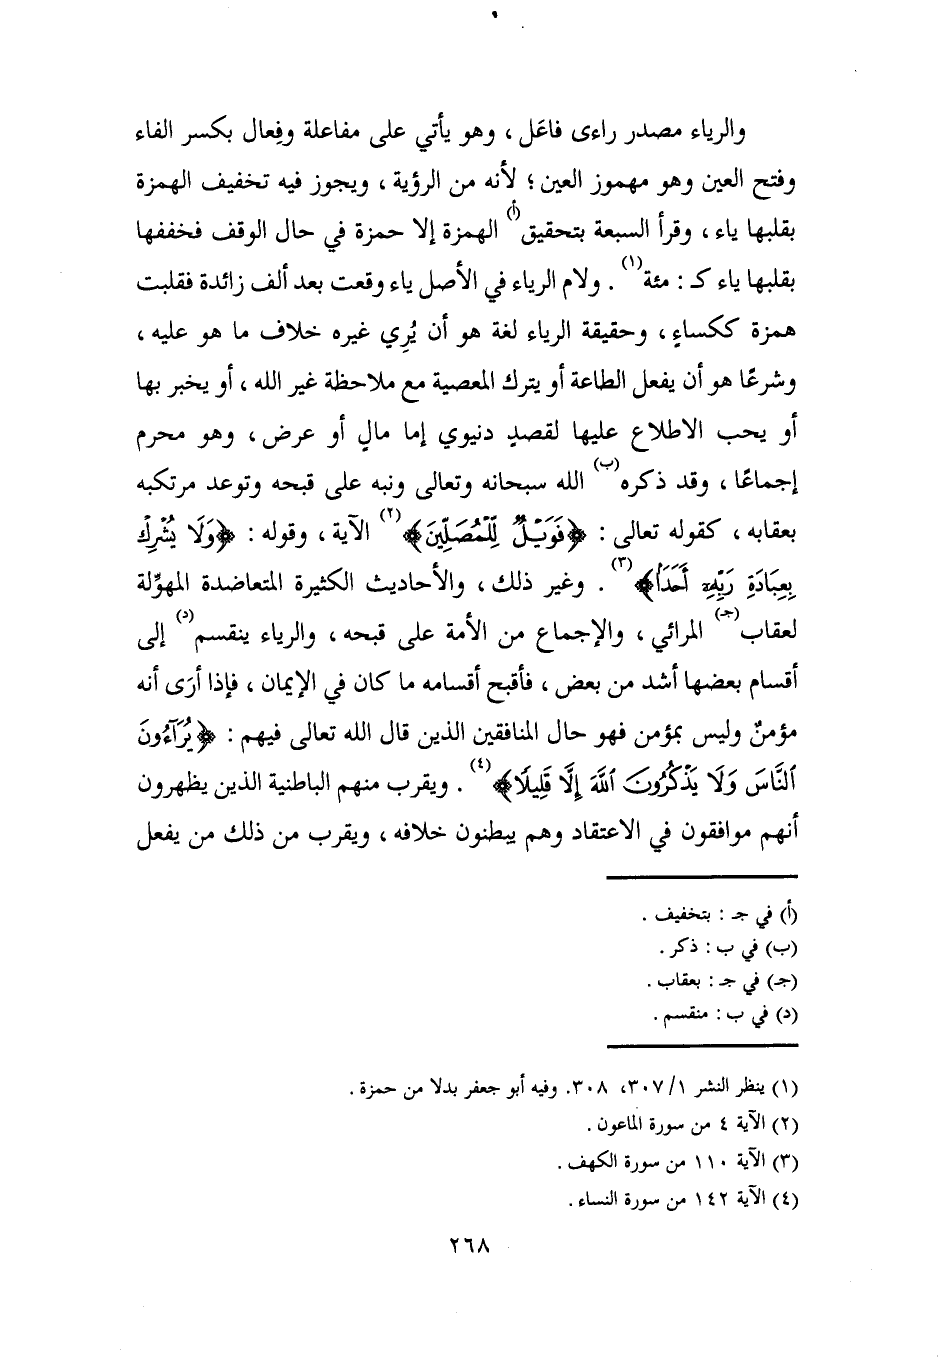 والرياء مصدر راءى فاعَل ، وهو يأتي على مفاعلة وفِعال بكسر الفاء
وفتح العين وهو مهموز العين ؛ لأنه من الرؤية ، ويجوز فيه تخفيف الهمزة
بقلبها ياء ، وقرأ السبعة بتحقيق(أ) الهمزة إلا حمزة في حال الوقف فخففها
بقلبها ياء كـ : مئة(١) . ولام الرياء في الأصل ياء وقعت بعد ألف زائدة فقلبت
همزة ككساءٍ ، وحقيقة الرياء لغة هو أن يُرِي غيره خلاف ما هو عليه ،
وشرعًا هو أن يفعل الطاعة أو يترك المعصية مع ملاحظة غير الله ، أو يخبر بها
أو يحب الاطلاع عليها لقصدٍ دنيوي إما مالٍ أو عرض ، وهو محرم
إجماعًا ، وقد ذكره(ب) الله سبحانه وتعالى ونبه على قبحه وتوعد مرتكبه
بعقابه ، كقوله تعالى : ﴿فَوَيْلٌ لِّلْمُصَلِّينَ﴾(٢) الآية ، وقوله : ﴿وَلَا يُشْرِكْ
بِعِبَادَةِ رَبِّهِۦٓ أَحَدَۢا﴾(٣) . وغير ذلك ، والأحاديث الكثيرة المتعاضدة المهوِّلة
لعقاب(جـ) المرائي ، والإجماع من الأمة على قبحه ، والرياء ينقسم(د) إلى
أقسام بعضها أشد من بعض ، فأقبح أقسامه ما كان في الإيمان ، فإذا أرَى أنه
مؤمنٌ وليس بمؤمن فهو حال المنافقين الذين قال الله تعالى فيهم : ﴿يُرَآءُونَ
ٱلنَّاسَ وَلَا يَذْكُرُونَ ٱللَّهَ إِلَّا قَلِيلًا﴾(٤) . ويقرب منهم الباطنية الذين يظهرون
أنهم موافقون في الاعتقاد وهم يبطنون خلافه ، ويقرب من ذلك من يفعل
(أ) في جـ : بتخفيف .
(ب) في ب : ذكر .
(جـ) في جـ : بعقاب .
(د) في ب : منقسم .
(١) ينظر النشر ١/ ٣٠٧، ٣٠٨. وفيه أبو جعفر بدلا من حمزة .
(٢) الآية ٤ من سورة الماعون .
(٣) الآية ١١٠ من سورة الكهف .
(٤) الآية ١٤٢ من سورة النساء .
٢٦٨